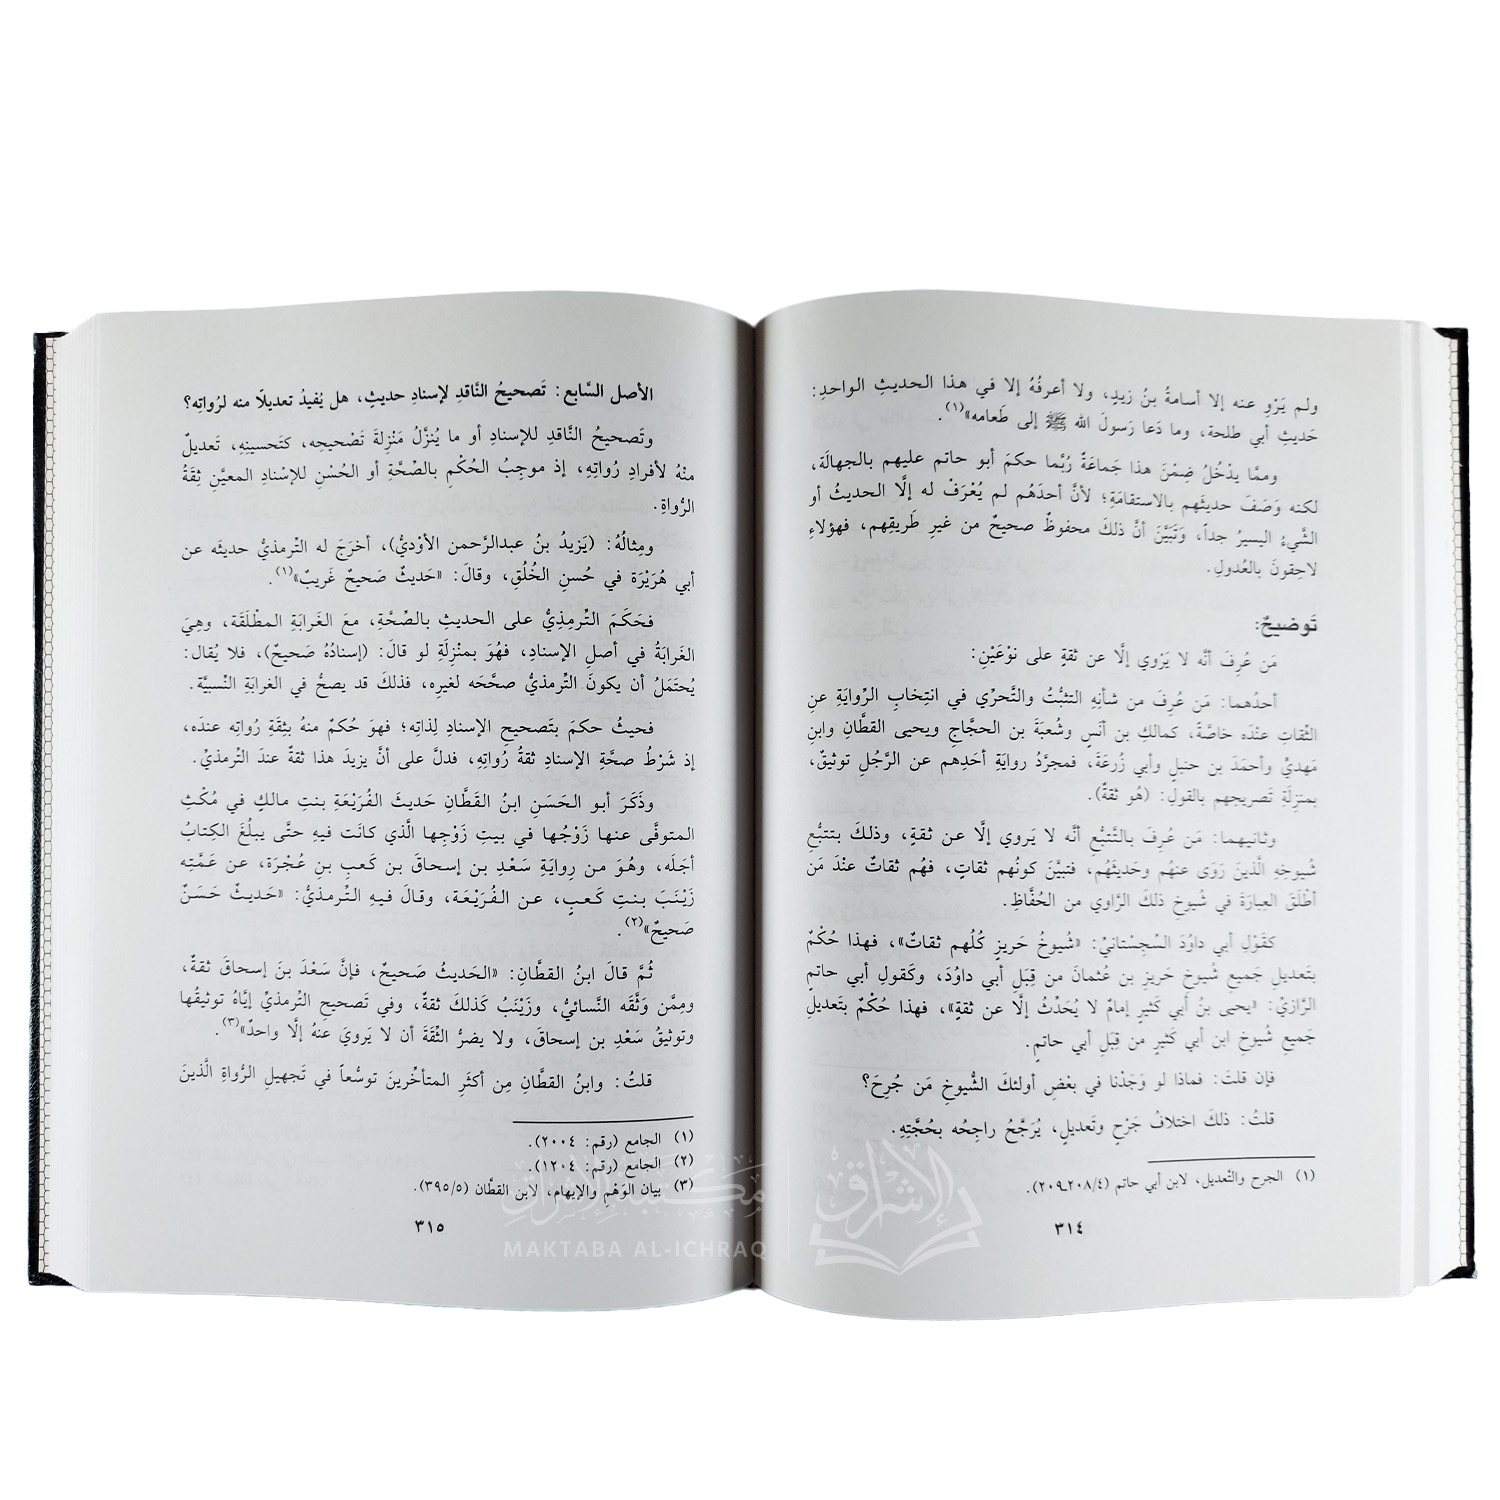 ولم يَرْوِ عنه إلا أسامةُ بنُ زيدٍ، ولا أعرفُهُ إلا في هذا الحديثِ الواحدِ:
حَديثِ أبي طلحة، وما دَعا رَسولَ الله ﷺ إلى طَعامه»(١).
وممَّا يدْخُلُ ضِمْنَ هذا جَماعَةٌ رُبَّما حكمَ أبو حاتم عليهم بالجهالَة،
لكنه وَصَفَ حديثَهم بالاستقامَةِ؛ لأنَّ أحدَهُم لم يُعْرَفْ له إلَّا الحديثُ أو
الشَّيءُ اليسيرُ جداً، وَتَبَيَّنَ أنَّ ذلكَ محفوظٌ صحيحٌ من غيرِ طَريقِهم، فهؤلاءِ
لاحِقونَ بالعُدولِ.
تَوضيحٌ:
مَن عُرِفَ أنَّه لا يَرْوي إلَّا عن ثقةٍ على نوْعَيْنِ:
أحدُهما: مَن عُرِفَ من شأنِهِ التثبُّتُ والتَّحرِّي في انتِخابِ الرِّوايَةِ عنِ
الثِّقاتِ عنْدَه خاصَّةً، كمالكِ بن أنَسٍ وشُعبَةَ بن الحجَّاجِ ويحيى القطَّانِ وابنِ
مَهديٍّ وأحمَدَ بن حنبلٍ وأبي زُرعَةَ، فمجرَّدُ روايَةِ أحَدِهم عن الرَّجُلِ توثيقٌ،
بمنزلَةِ تَصريحِهم بالقولِ: (هُو ثقةٌ).
وثانيهما: مَن عُرِفَ بالتَّتبُّعِ أنَّه لا يَروي إلَّا عن ثقةٍ، وذلكَ بتتبُّعِ
شُيوخِهِ الَّذينَ رَوَى عنهُم وحَديثَهُم، فتبيَّنَ كونُهُم ثقاتٍ، فهُم ثقاتٌ عنْدَ مَن
أطْلَقَ العِبارَةَ في شُيوخِ ذلكَ الرَّاوي من الحُفَّاظِ.
كقَوْلِ أبي داوُدَ السِّجِسْتانيِّ: «شُيوخُ حَريزٍ كُلُهم ثقاتٌ»، فهذا حُكْمٌ
بتَعديلِ جَميعِ شُيوخِ حَريزِ بن عُثمانَ من قِبَلِ أبي داوُدَ، وكَقولِ أبي حاتمٍ
الرَّازيِّ: «يحيى بنُ أبي كَثيرٍ إمامٌ لا يُحَدِّثُ إلَّا عن ثقةٍ»، فهذا حُكْمٌ بتَعديلِ
جَميعِ شُيوخِ ابن أبي كَثيرٍ من قِبَلِ أبي حاتمٍ.
فإن قلتَ: فماذا لو وَجَدْنا في بعْضِ أولئكَ الشُّيوخِ مَن جُرِحَ؟
قلتُ: ذلكَ اختلافُ جَرْحٍ وتَعديلٍ، يُرَجَّحُ راجِحُه بحُجَّتِهِ.
(١) الجرح والتَّعديل، لابن أبي حاتم (٢٠٨/٤ـ٢٠٩).
٣١٤
الأصل السَّابع: تَصحيحُ النَّاقدِ لإسنادِ حديثٍ، هل يُفيدُ تعديلًا منه لرُواتِه؟
وتَصحيحُ النَّاقدِ للإسنادِ أو ما يُنزَّلُ مَنْزِلةَ تَصْحيحِه، كتَحسينِهِ، تَعديلٌ
منْهُ لأفرادِ رُواتِهِ، إذ موجِبُ الحُكْم بالصِّحَّةِ أو الحُسْنِ للإسْنادِ المعيَّنِ ثِقَةُ
الرُّواةِ.
ومِثالُهُ: (يَزيدُ بنُ عبدالرَّحمن الأوْديُّ)، أخرَجَ له التِّرمذيُّ حديثَه عن
أبي هُرَيْرَة في حُسنِ الخُلُقِ، وقالَ: «حَديثٌ صَحيحٌ غَريبٌ»(١).
فحَكَمَ التِّرمِذِيُّ على الحديثِ بالصِّحَّةِ، معَ الغَرابَةِ المطلَقَة، وهِيَ
الغَرابَةُ في أصلِ الإسنادِ، فهُوَ بمنْزِلَةِ لو قالَ: (إسنادُهُ صَحيحٌ)، فلا يُقال:
يُحتَمَلُ أن يكونَ التِّرمذيُّ صحَّحَه لغيرِه، فذلكَ قد يصحُّ في الغرابَةِ النِّسبيَّة.
فحيثُ حكمَ بتَصحيحِ الإسنادِ لِذاتِه؛ فهوَ حُكمٌ منهُ بثِقَةِ رُواتِه عندَه،
إذ شَرْطُ صحَّةِ الإسنادِ ثقةُ رُواتِهِ، فدلَّ على أنَّ يزيدَ هذا ثقةٌ عندَ التِّرمذيِّ.
وذَكَرَ أبو الحَسَنِ ابنُ القَطَّانِ حَديثَ الفُرَيْعَةِ بنتِ مالكٍ في مُكْثِ
المتوفَّى عنها زَوْجُها في بيتِ زَوْجِها الَّذي كانَت فيهِ حتَّى يبلُغَ الكِتابُ
أجَلَه، وهُوَ من رِوايَةِ سَعْدِ بن إسحاقَ بنِ كَعبِ بنِ عُجْرَة، عن عَمَّتِه
زَيْنَبَ بنتِ كَعبٍ، عن الفُرَيْعَة، وقالَ فيهِ التِّرمذيُّ: «حَديثٌ حَسَنٌ
صَحيحٌ»(٢).
ثُمَّ قالَ ابنُ القطَّانِ: «الحَديثُ صَحيحٌ، فإنَّ سَعْدَ بنَ إسحاقَ ثقةٌ،
وممَّن وَثَّقَه النَّسائيُّ، وزَيْنَبُ كَذلكَ ثقةٌ، وفي تَصحيحِ التِّرمذيِّ إيَّاهُ توثيقُها
وتوثيقُ سَعْدِ بن إسحاقَ، ولا يضرُّ الثِّقَةَ أن لا يَرويَ عنهُ إلَّا واحدٌ»(٣).
قلتُ: وابنُ القطَّانِ مِن أكثَرِ المتأخِّرينَ توسُّعاً في تَجهيلِ الرُّواةِ الَّذينَ
(١) الجامع (رقم: ٢٠٠٤).
(٢) الجامع (رقم: ١٢٠٤).
(٣) بيان الوَهْمِ والإيهام، لابن القطَّان (٣٩٥/٥).
٣١٥
مكتبة الإشراق
الإشراق
MAKTABA AL-ICHRAQ